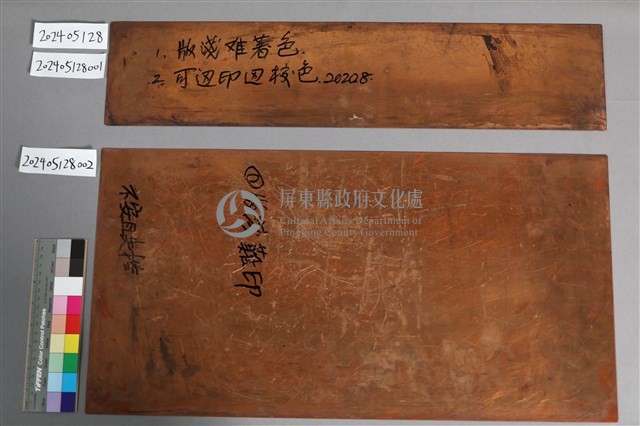 202405128
202405128001
1. 版淺难著色.
2. 可边印边校色.202208.
202405128002
屏東縣政府文化處
Cultural Affairs Department of
Pingtung County Government
難印
TIFFEN Color Control Patches